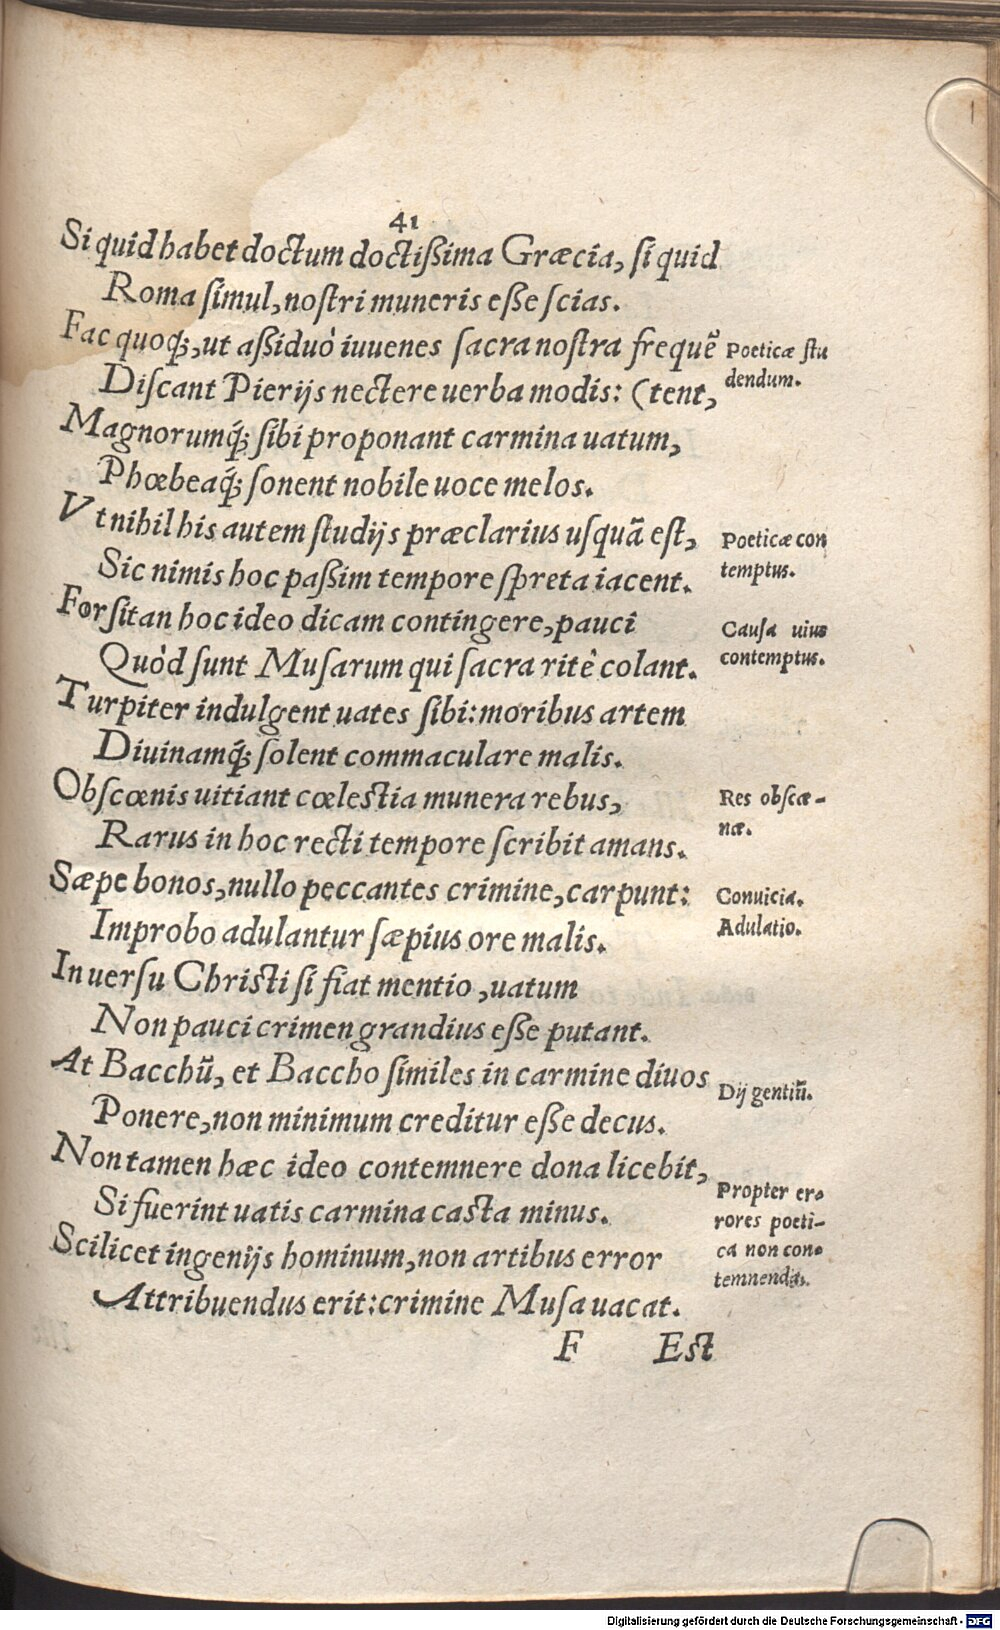 41
Si quid habet doctum doctißima Græcia, si quid
Roma simul, nostri muneris eße scias.
Fac quoq;, ut aßiduò iuuenes sacra nostra frequẽ
Discant Pierijs nectere uerba modis: (tent,
Magnorumq́; sibi proponant carmina uatum,
Phœbeaq́; sonent nobile uoce melos.
Vt nihil his autem studijs præclarius usquã est,
Sic nimis hoc paßim tempore spreta iacent.
Forsitan hoc ideo dicam contingere, pauci
Quòd sunt Musarum qui sacra ritè colant.
Turpiter indulgent uates sibi: moribus artem
Diuinamq́; solent commaculare malis.
Obscœnis uitiant cœlestia munera rebus,
Rarus in hoc recti tempore scribit amans.
Sæpe bonos, nullo peccantes crimine, carpunt:
Improbo adulantur sæpius ore malis.
In uersu Christi si fiat mentio, uatum
Non pauci crimen grandius eße putant.
At Bacchũ, et Baccho similes in carmine diuos
Ponere, non minimum creditur eße decus.
Non tamen hæc ideo contemnere dona licebit,
Si fuerint uatis carmina casta minus.
Scilicet ingenijs hominum, non artibus error
Attribuendus erit: crimine Musa uacat.
F Est
Poeticæ stu
dendum.
Poeticæ con
temptus.
Causa uius
contemptus.
Res obscœ-
næ.
Conuicia.
Adulatio.
Dij gentiũ.
Propter er-
rores poeti-
ca non con-
temnenda.
Digitalisierung gefördert durch die Deutsche Forschungsgemeinschaft - DFG